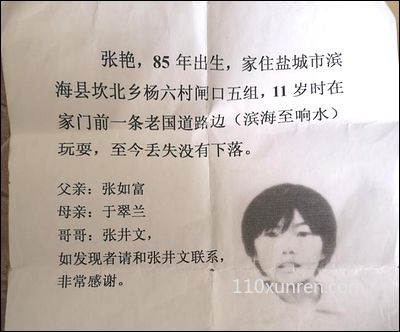 张艳，85 年出生，家住盐城市滨
海县坎北乡杨六村闸口五组，11 岁时在
家门前一条老国道路边（滨海至响水）
玩耍，至今丢失没有下落。
父亲：张如富
母亲：于翠兰
哥哥：张井文，
如发现者请和张井文联系，
非常感谢。
110xunren.com